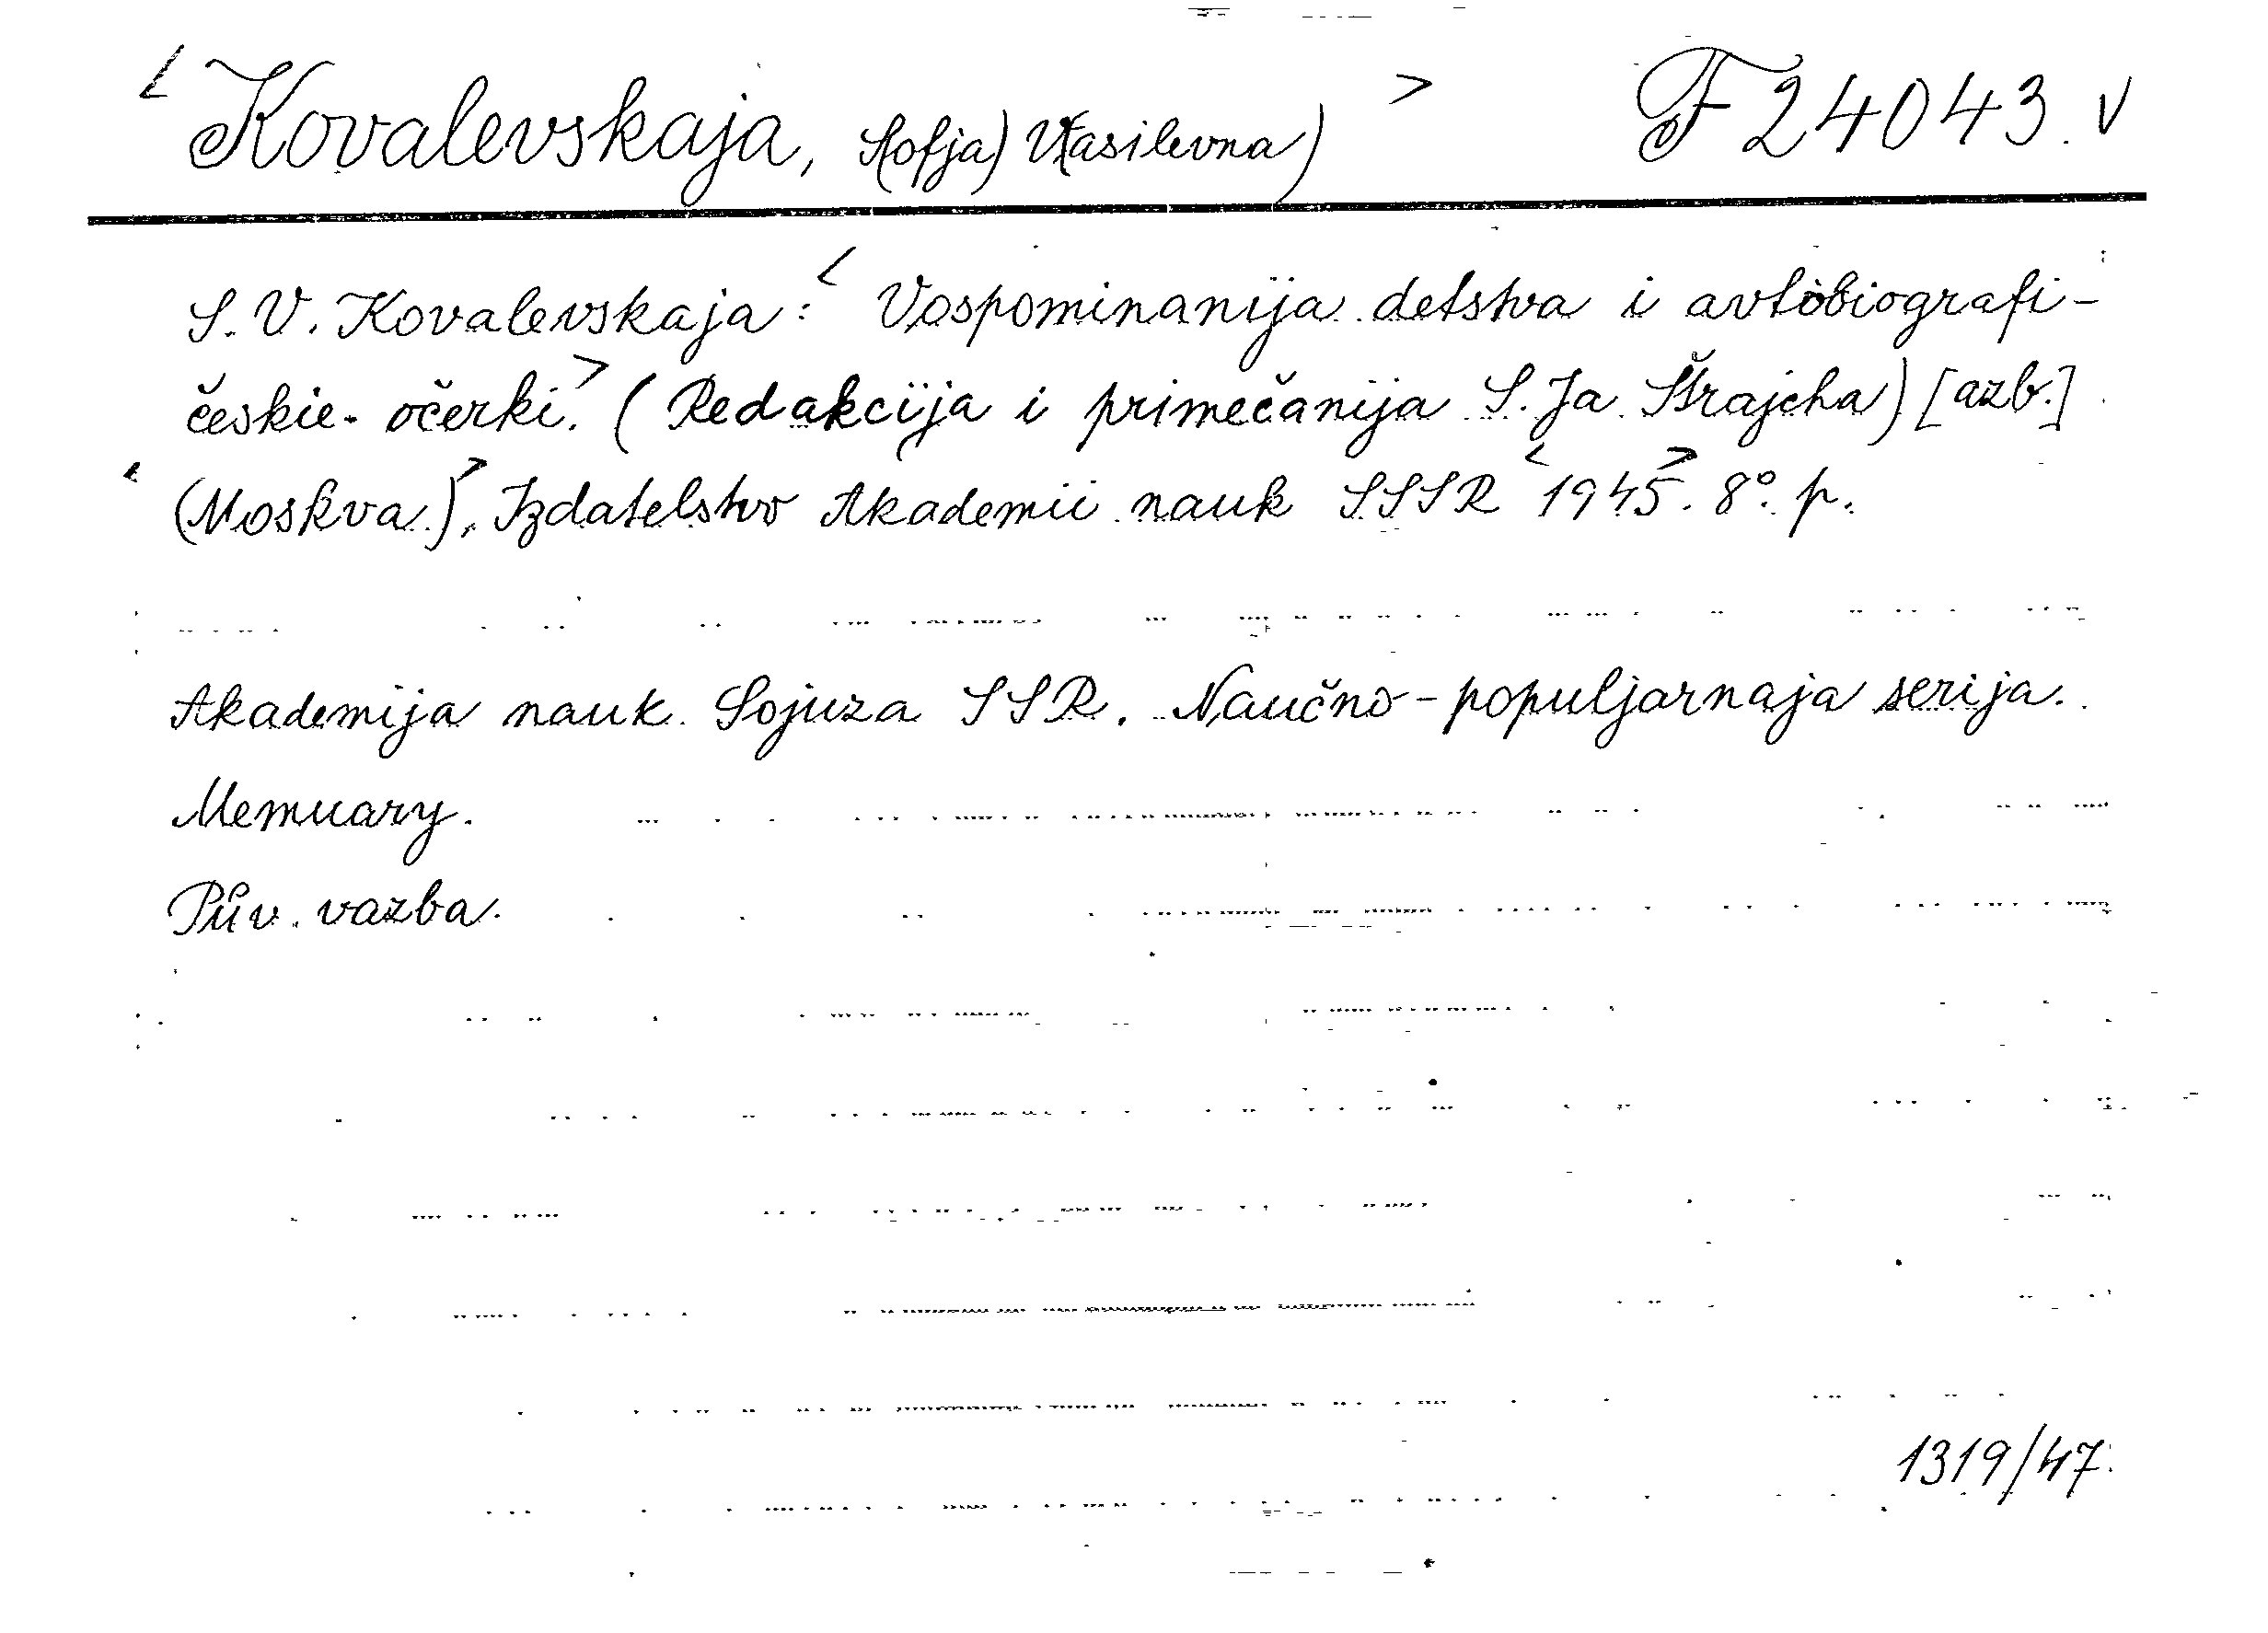 < Kovalevskaja, S(ofja) V(asilevna) > F 24043. v
S. V. Kovalevskaja: < Vospominanija detstva i avtobiografi-
českie očerki. > (Redakcija i primečanija S. Ja. Štrajcha) [azb.]
< (Moskva.) >, Izdatelstvo Akademii nauk SSSR < 1945 >. 8°. p.
Akademija nauk Sojuza SSR. Naučno-populjarnaja serija.
Memuary.
Pův. vazba.
1319/47.